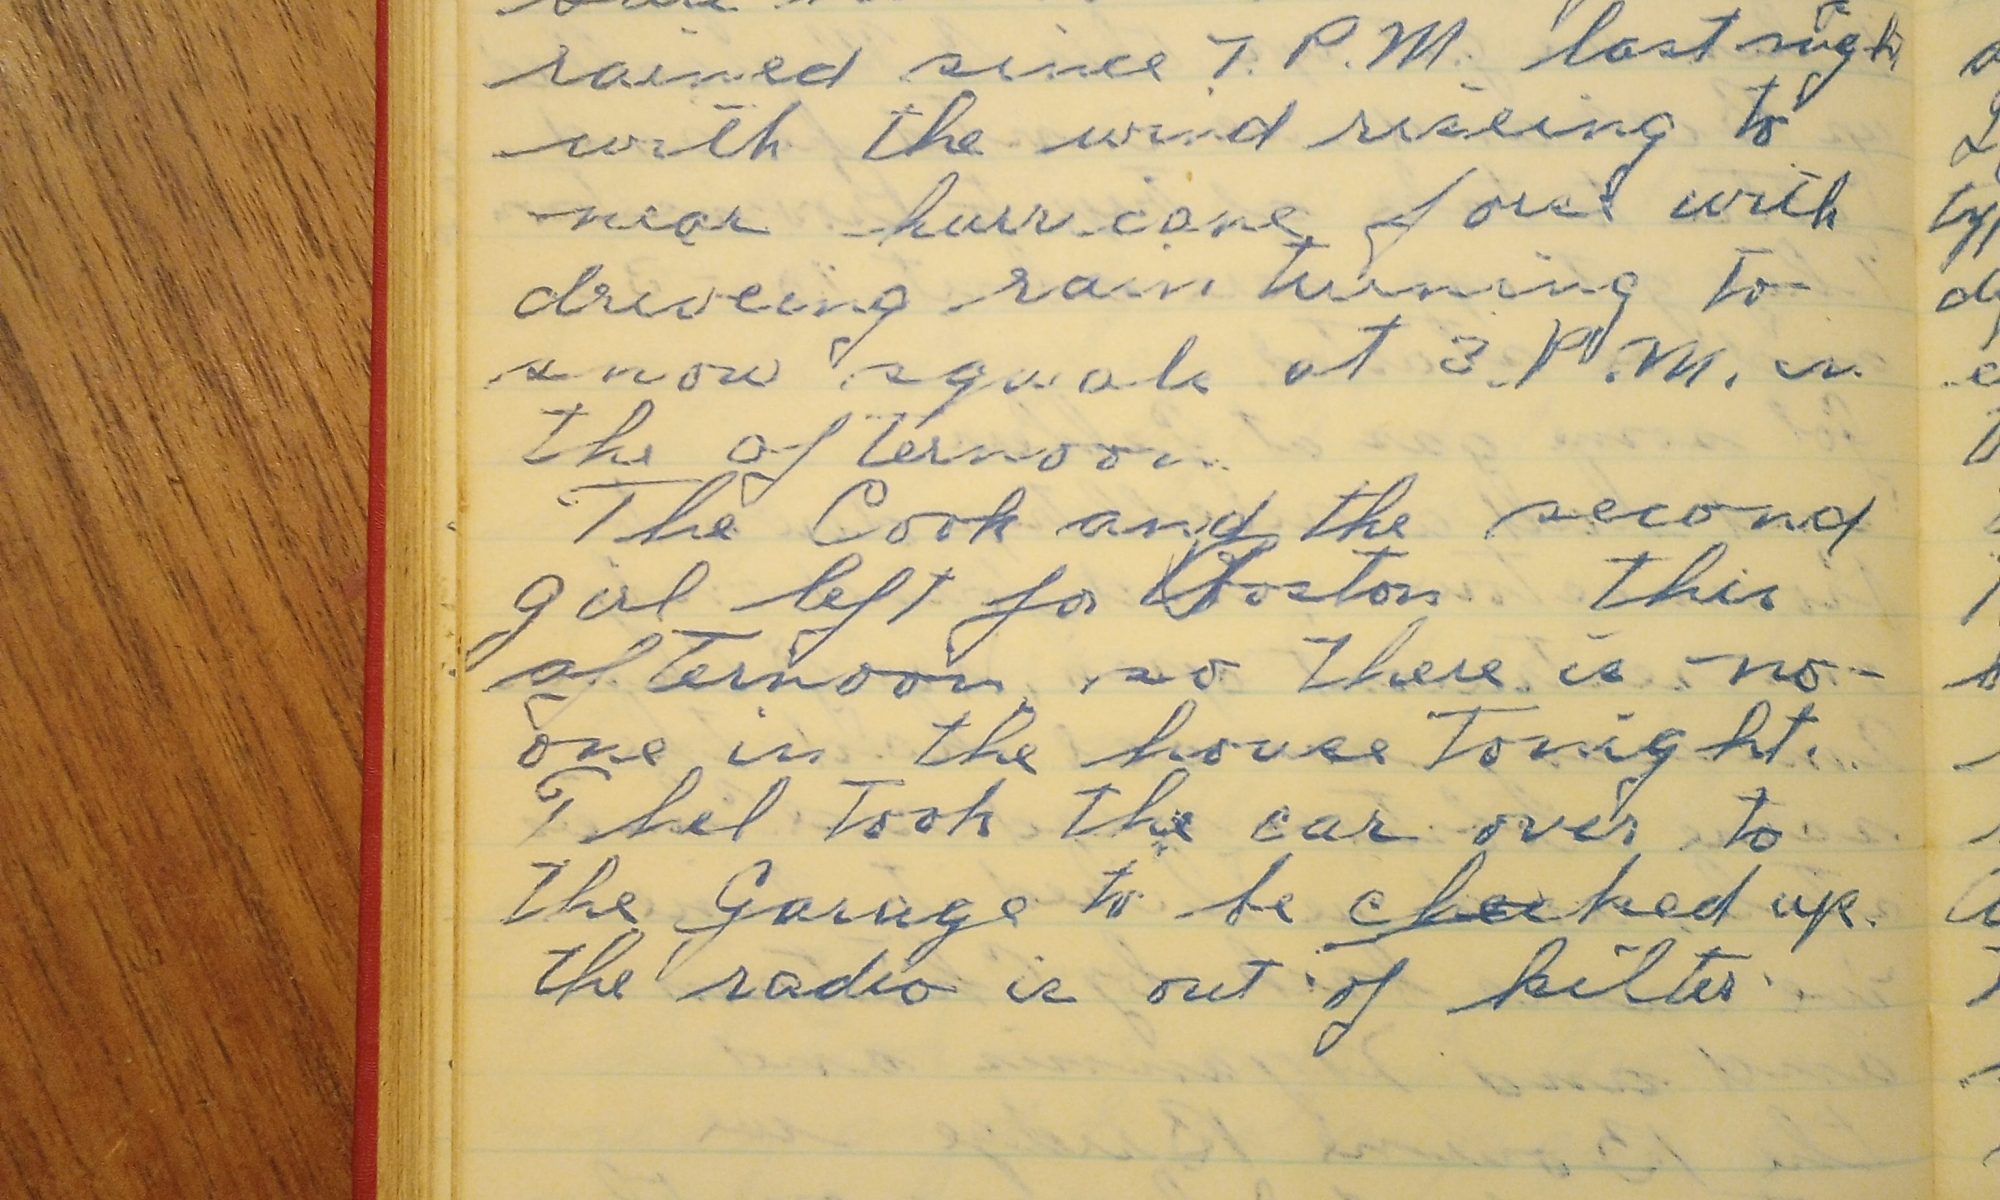 rained since 7. P.M. last nigh
with the wind riseing to
near hurricane forse with
driveing rain turning to
snow squals at 3. P.M. in
the afternoon.
The Cook and the second
girl left for Boston this
afternoon so there is no-
one in the house tonight.
Thel took the car over to
the Garage to be checked up.
the radio is out of kilter.